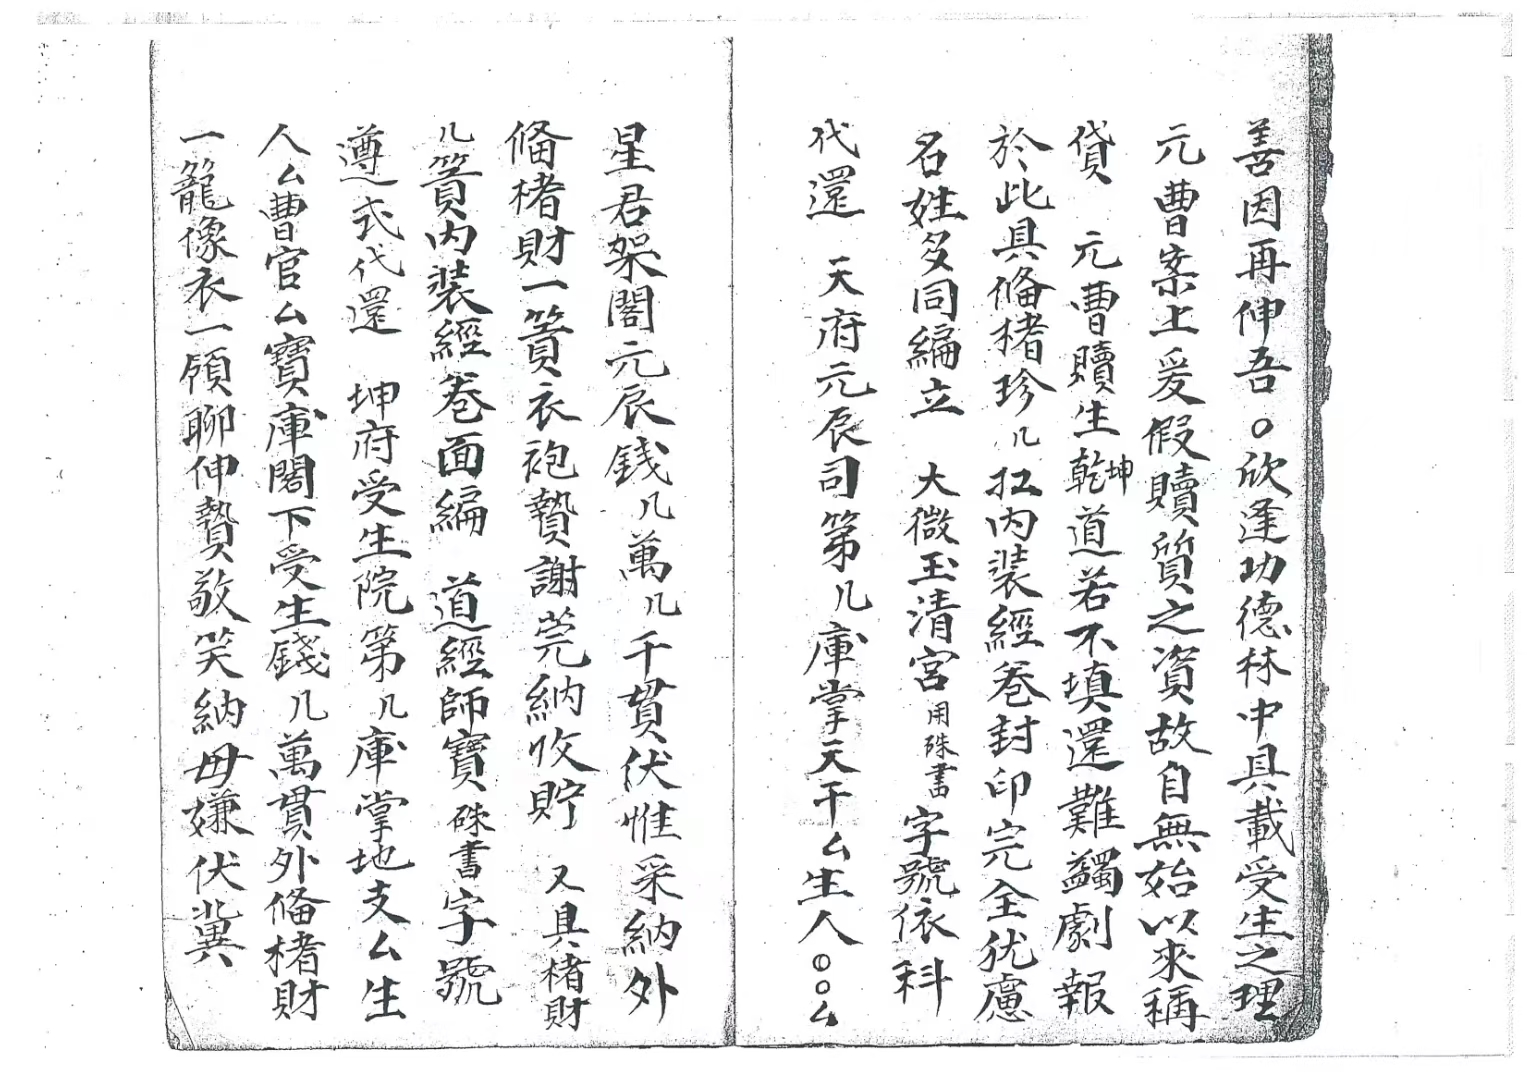 善因再伸吾○欣逢功德林中具載受生之理
元曹案上爰假贖質之資故自無始以來稱
貸 元曹贖生乾坤道若不填還難蠲劇報
於此具俻楮珍几扛内装經卷封印完全犹慮
名姓多同編立 大微玉清宮用硃書字號依科
代還 天府元辰司第几庫掌天干厶生人○○厶
星君架閣元辰錢几萬几千貫伏惟采納外
俻楮財一簣衣袍贄謝莞納收貯 又具楮財
几簣内装經卷面編 道經師寶硃書字號
遵式代還 坤府受生院第几庫掌地支厶生
人厶曹官厶寶庫閣下受生錢几萬貫外俻楮財
一籠像衣一領聊伸贄敬笑納毋嫌伏兾